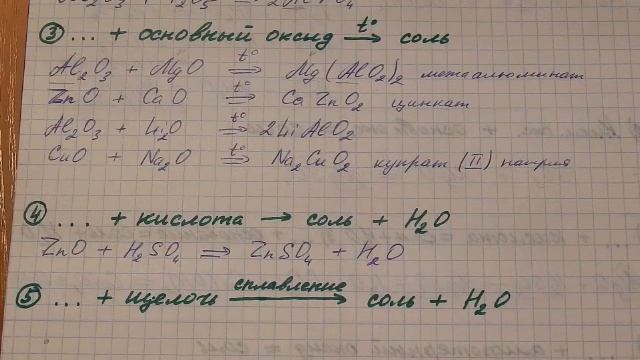 ③ ... + основный оксид t°→ соль
Al₂O₃ + MgO t°⇒ Mg(AlO₂)₂ метаалюминат
ZnO + CaO t°⇒ CaZnO₂ цинкат
Al₂O₃ + Li₂O t°⇒ 2LiAlO₂
CuO + Na₂O t°⇒ Na₂CuO₂ купрат (II) натрия
④ ... + кислота → соль + H₂O
ZnO + H₂SO₄ ⇒ ZnSO₄ + H₂O
⑤ ... + щелочь сплавление→ соль + H₂O